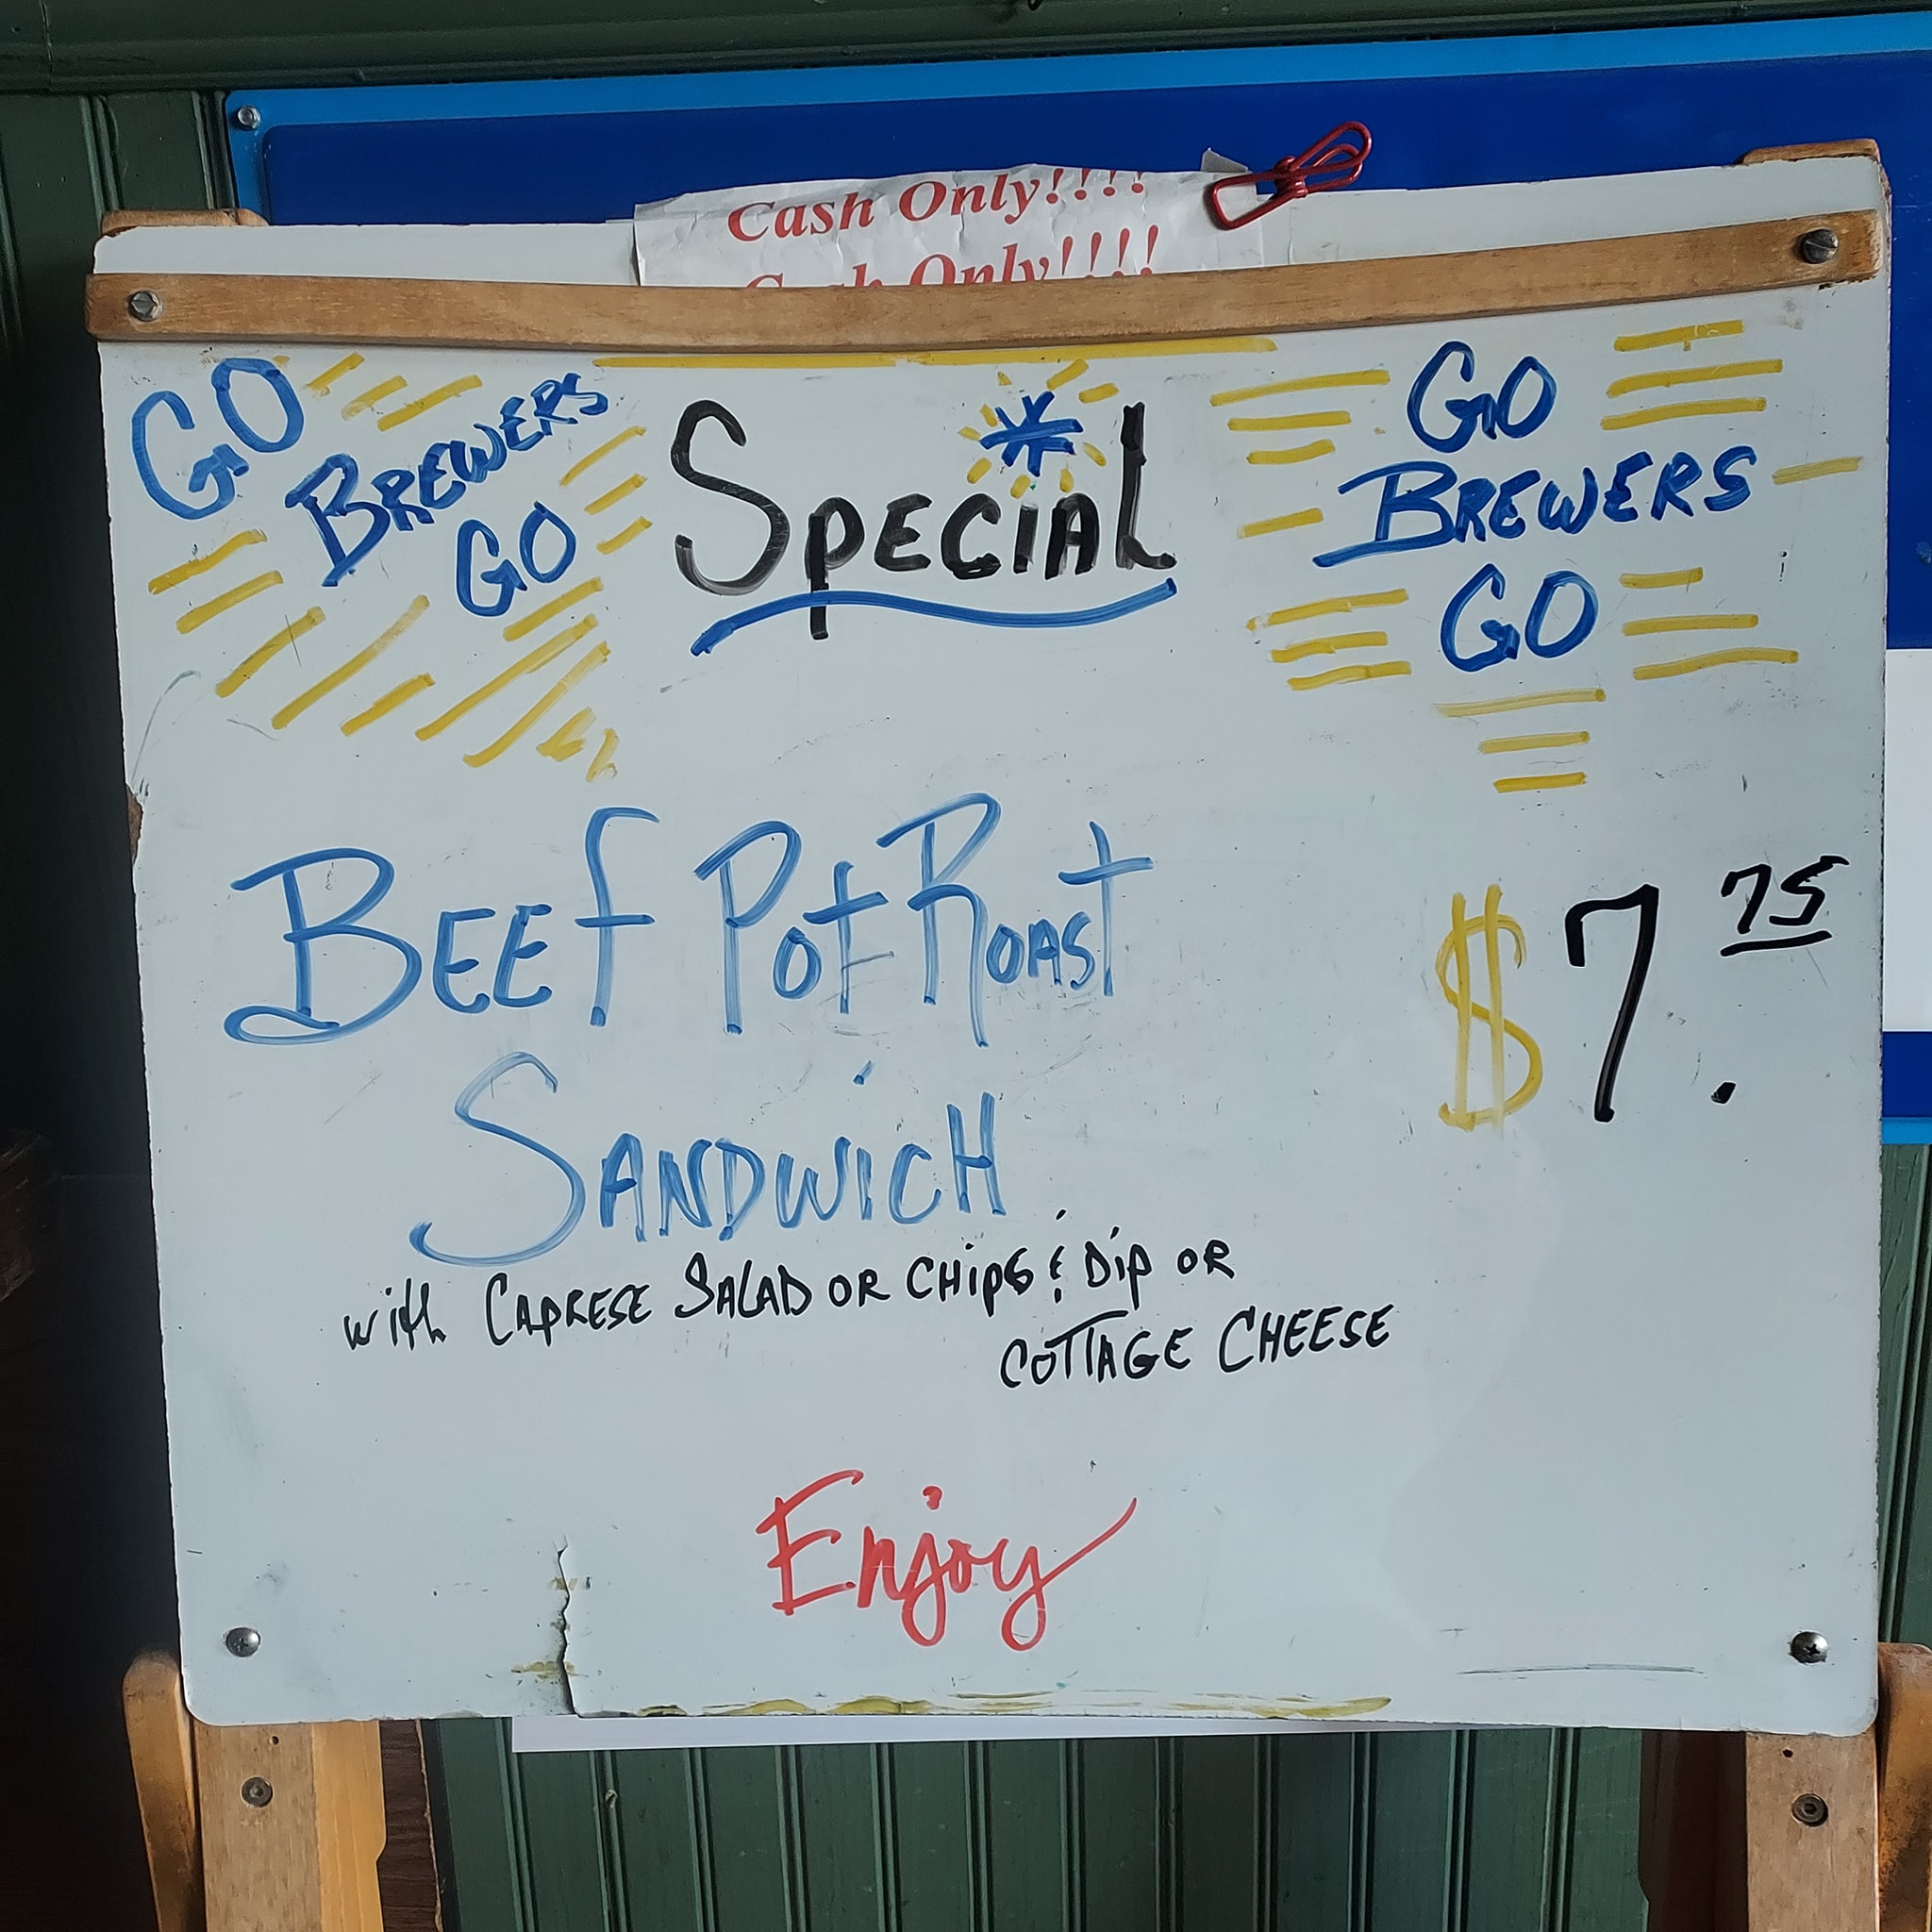 Cash Only!!!!
Cash Only!!!!
GO
BREWERS
GO
SPECIAL
GO
BREWERS
GO
BEEF POT ROAST
SANDWICH
$7.75
with CAPRESE SALAD OR CHIPS & DIP OR
COTTAGE CHEESE
Enjoy